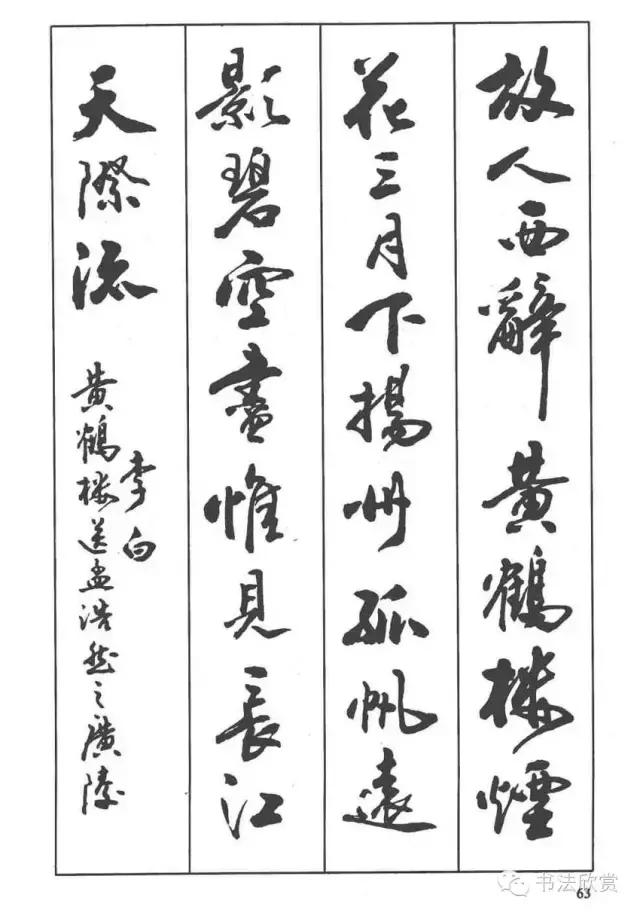 故人西辭黄鶴楼煙
花三月下揚州孤帆遠
影碧空盡惟見長江
天際流
李白
黄鶴楼送孟浩然之廣陵
63
书法欣赏